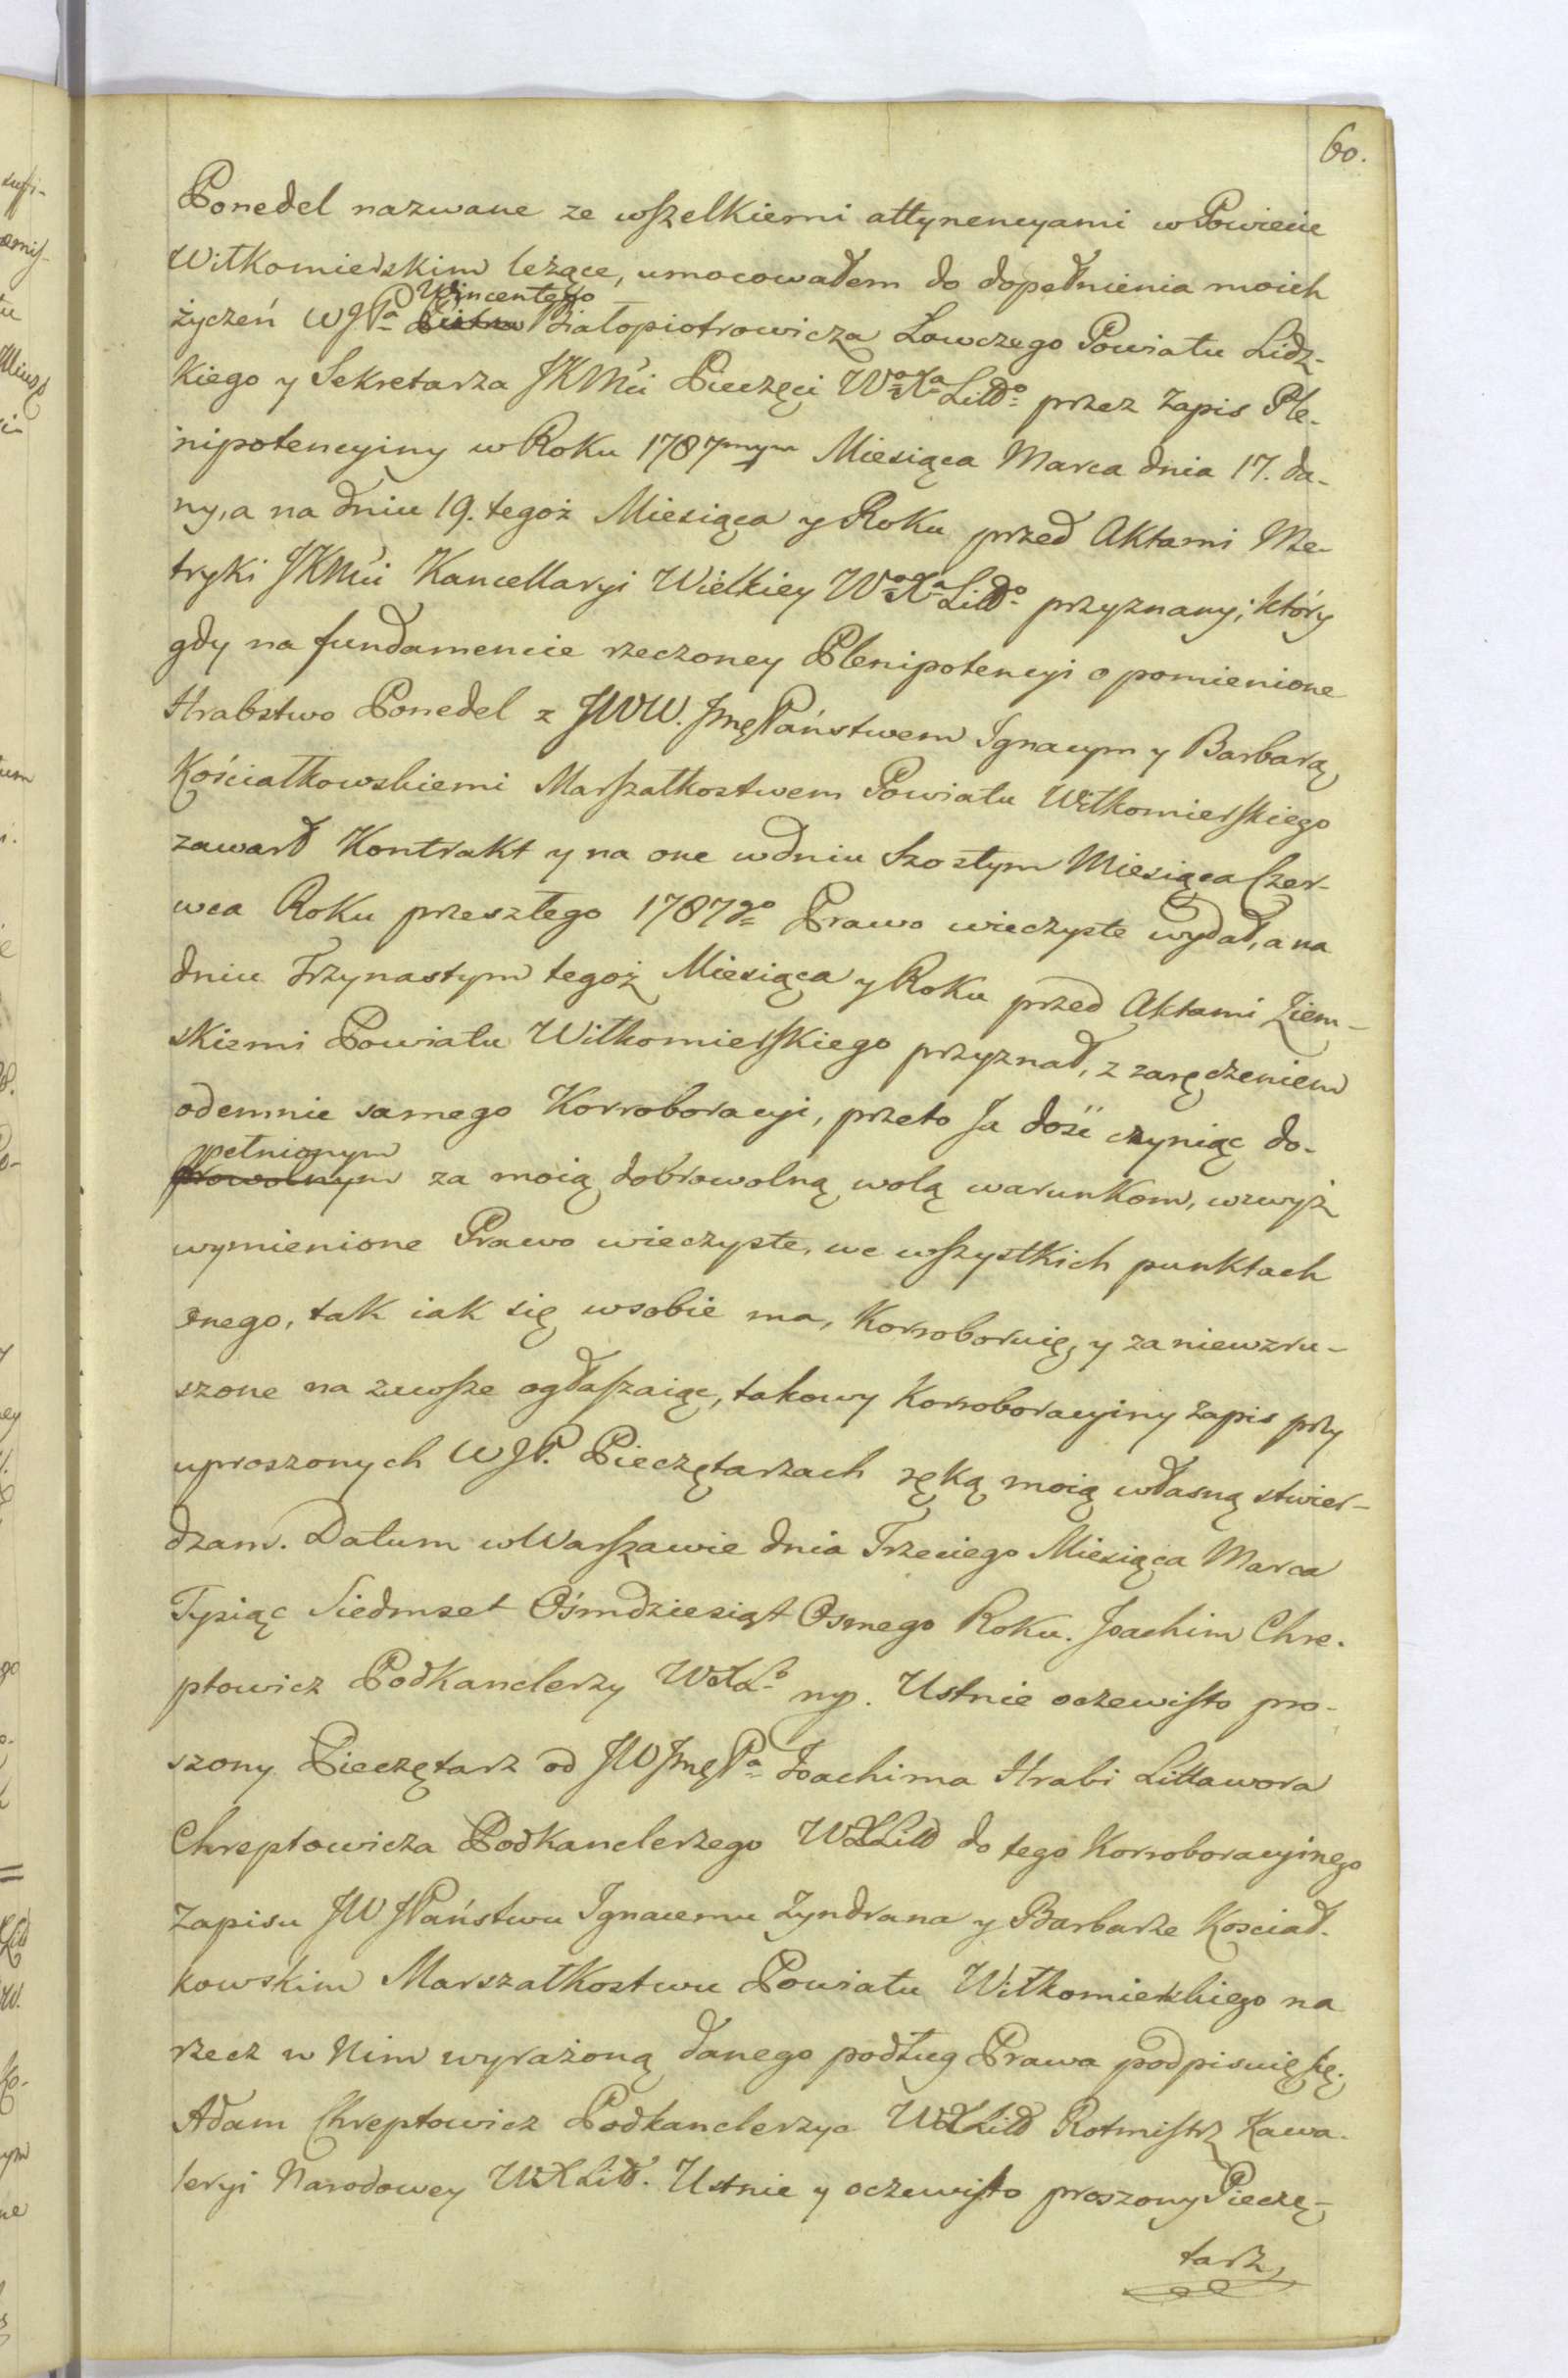 60.
Ponedel nazwane ze wszelkiemi attynencyami w Powiecie
Wiłkomierskim leżące, umocowałem do dopełnienia moich
Wincentego
życzeń WJPa Piotra Białopiotrowicza Łowczego Powiatu Lidz-
kiego y Sekretarza JKMci Pieczęci Wo Xa Littgo przez Zapis Ple-
nipotencyiny w Roku 1787mym Miesiąca Marca dnia 17. da-
ny, a na dniu 19. tegoż Miesiąca y Roku przed Aktami Me-
tryki JKMci Kancellaryi Wielkiey Wo Xa Littgo przyznany; który
gdy na fundamencie rzeczoney Plenipotencyi o pomienione
Hrabstwo Ponedel z JWW. JmęPaństwem Ignacym y Barbarą
Kościałkowskiemi Marszałkostwem Powiatu Wiłkomierskiego
zawarł Kontrakt y na one w dniu Szostym Miesiąca Czer-
wca Roku przeszłego 1787go Prawo wieczyste wydał, a na
dniu Trzynastym tegoż Miesiąca y Roku przed Aktami Ziem-
skiemi Powiatu Wiłkomierskiego przyznał, z zaręczeniem
odemnie samego Korroboracyi, przeto Ja dość czyniąc do-
pełnionym
browolnym za moią dobrowolną wolą warunkom, wzwyż
wymienione Prawo wieczyste, we wszystkich punktach
onego, tak iak się wsobie ma, Korroboruię, y za niewzru-
szone na zawsze ogłaszaiąc, takowy Korroboracyiny Zapis przy
uproszonych WJP. Pieczętarzach ręką moią własną stwier-
dzam. Datum w Warszawie dnia Trzeciego Miesiąca Marca
Tysiąc Siedmset Ośmdziesiąt Osmego Roku. Joachim Chre-
ptowicz Podkanclerzy WXLo mp. Ustnie oczewisto pro-
szony Pieczętarz od JW JmęPa Joachima Hrabi Littawora
Chreptowicza Podkanclerzego WXLitt do tego Korroboracyinego
Zapisu JW JPaństwu Ignacemu Zyndrana y Barbarze Kosciał-
kowskim Marszałkostwu Powiatu Wiłkomierskiego na
rzecz w Nim wyrażoną danego podług Prawa podpisuię się.
Adam Chreptowicz Podkanclerzyc WXLitt Rotmistrz Kawa-
leryi Narodowey WXLitt. Ustnie y oczewisto proszony Pieczę-
tarz,